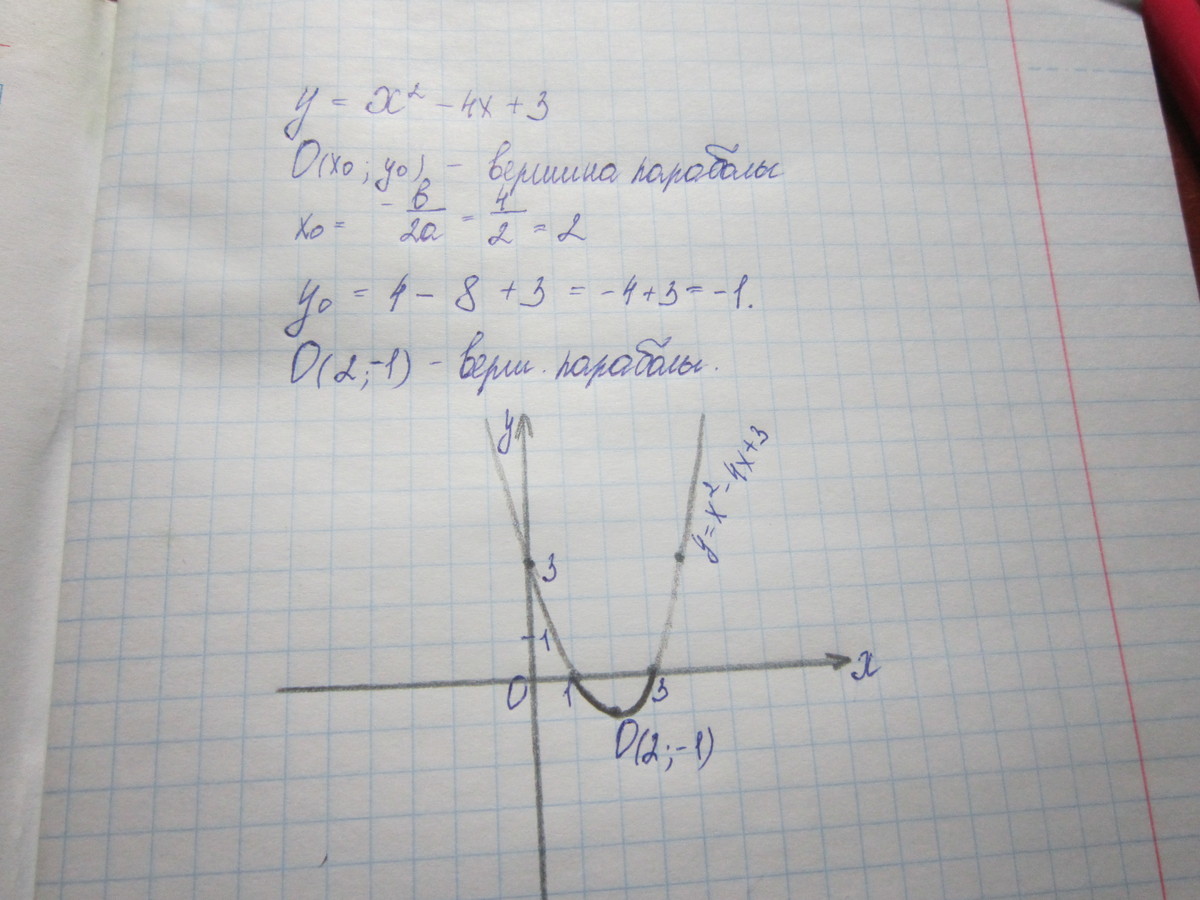 y = x² - 4x + 3
O(x₀; y₀) - вершина параболы
x₀ = -в/2a = 4/2 = 2
y₀ = 4 - 8 + 3 = -4+3 = -1.
O(2;-1) - верш. параболы.
y
y = x² - 4x + 3
3
1
x
0
1
3
O(2;-1)